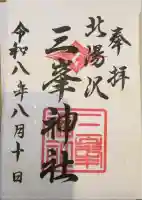 奉拝
北湯沢
三峯神社
令和八年八月十日